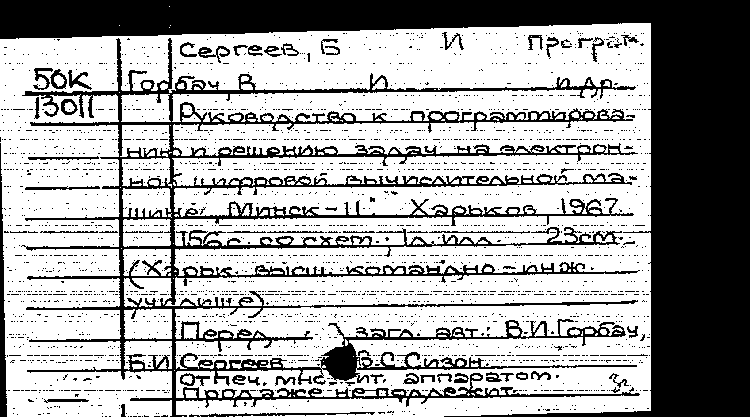 Сергеев, Б И Програм.
50К Горбач, В И и др.
13011 Руководство к программирова-
нию и решению задач на электрон-
ной цифровой вычислительной ма-
шине „Минск-11". Харьков, 1967.
156 с. со схем.; 1 л. илл. 23 см.
(Харьк. высш. командно-инж.
училище).
Перед загл. авт.: В.И. Горбач,
Б.И. Сергеев В.С. Сизон.
Отпеч. аппаратом.
Продаже не подлежит.